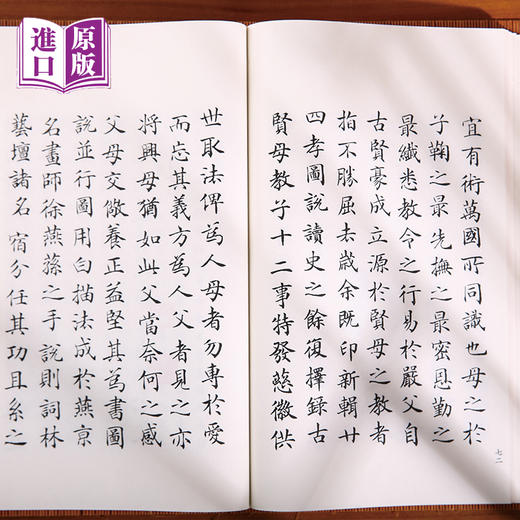 原版
進口
宜有術萬國所同識也母之於
子鞠之最先撫之最密恩勤之
最纖悉教令之行易於嚴父自
古賢豪成立源於賢母之教者
指不勝屈去歲余既印新輯廿
四孝圖說讀史之餘復擇錄古
賢母教子十二事特發慈徽供
七二
世取法俾為人母者勿專於愛
而忘其義方為人父者見之亦
將興母猶如此父當奈何之感
父母交儆養正益堅其為書圖
說並行圖用白描法成於燕京
名畫師徐燕蓀之手說則詞林
藝壇諸名宿分任其功且系之